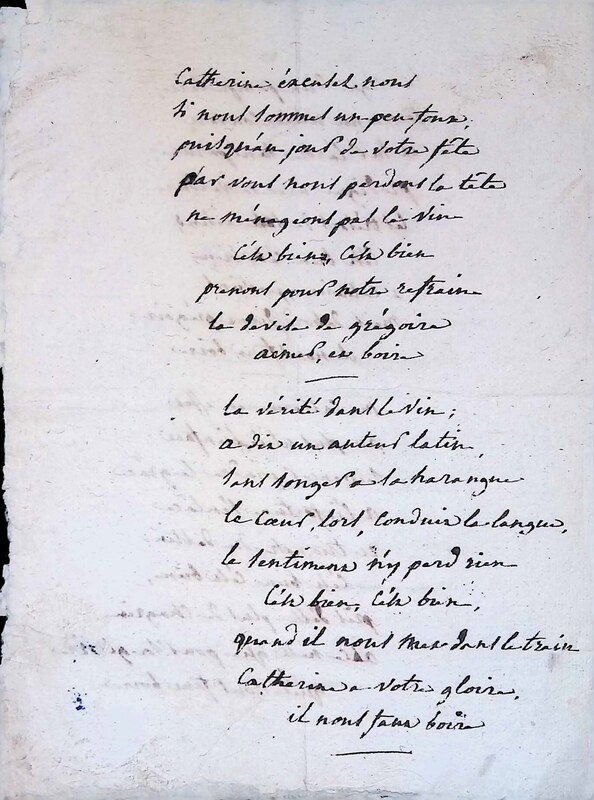 Catherine éxcusés nous
si nous sommes un peu foux,
puisqu'au jour de votre fête
par vous nous perdons la tête
ne ménageons pas le vin
C'est bien, C'est bien
prenons pour notre refrain
la devise de grégoire
aimer, et boire
la vérité dans le vin;
a dit un auteur latin,
sans songer a la harangue
le Cœur, lors, Conduit la langue,
le sentiment n'y perd rien
C'est bien, C'est bien,
quand il nous met dans le train
Catherine a votre gloire,
il nous faut boire